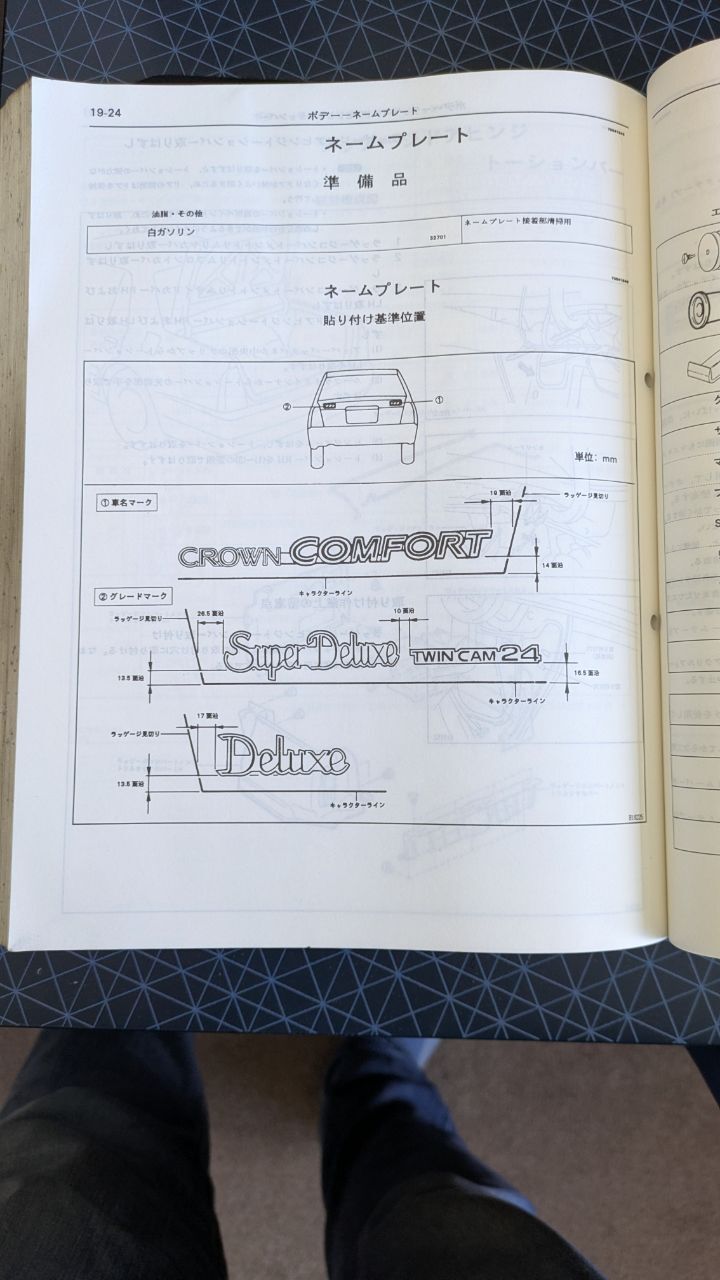 19-24
ボデー―ネームプレート
ネームプレート
準備品
油脂・その他
白ガソリン
ネームプレート接着部清掃用
ネームプレート
貼り付け基準位置
②
①
単位: mm
① 車名マーク
19 面沿
ラッゲージ見切り
CROWN COMFORT
14 面沿
キャラクターライン
② グレードマーク
ラッゲージ見切り
26.5 面沿
10 面沿
Super Deluxe
TWIN CAM 24
13.5 面沿
16.5 面沿
キャラクターライン
17 面沿
ラッゲージ見切り
Deluxe
13.5 面沿
キャラクターライン